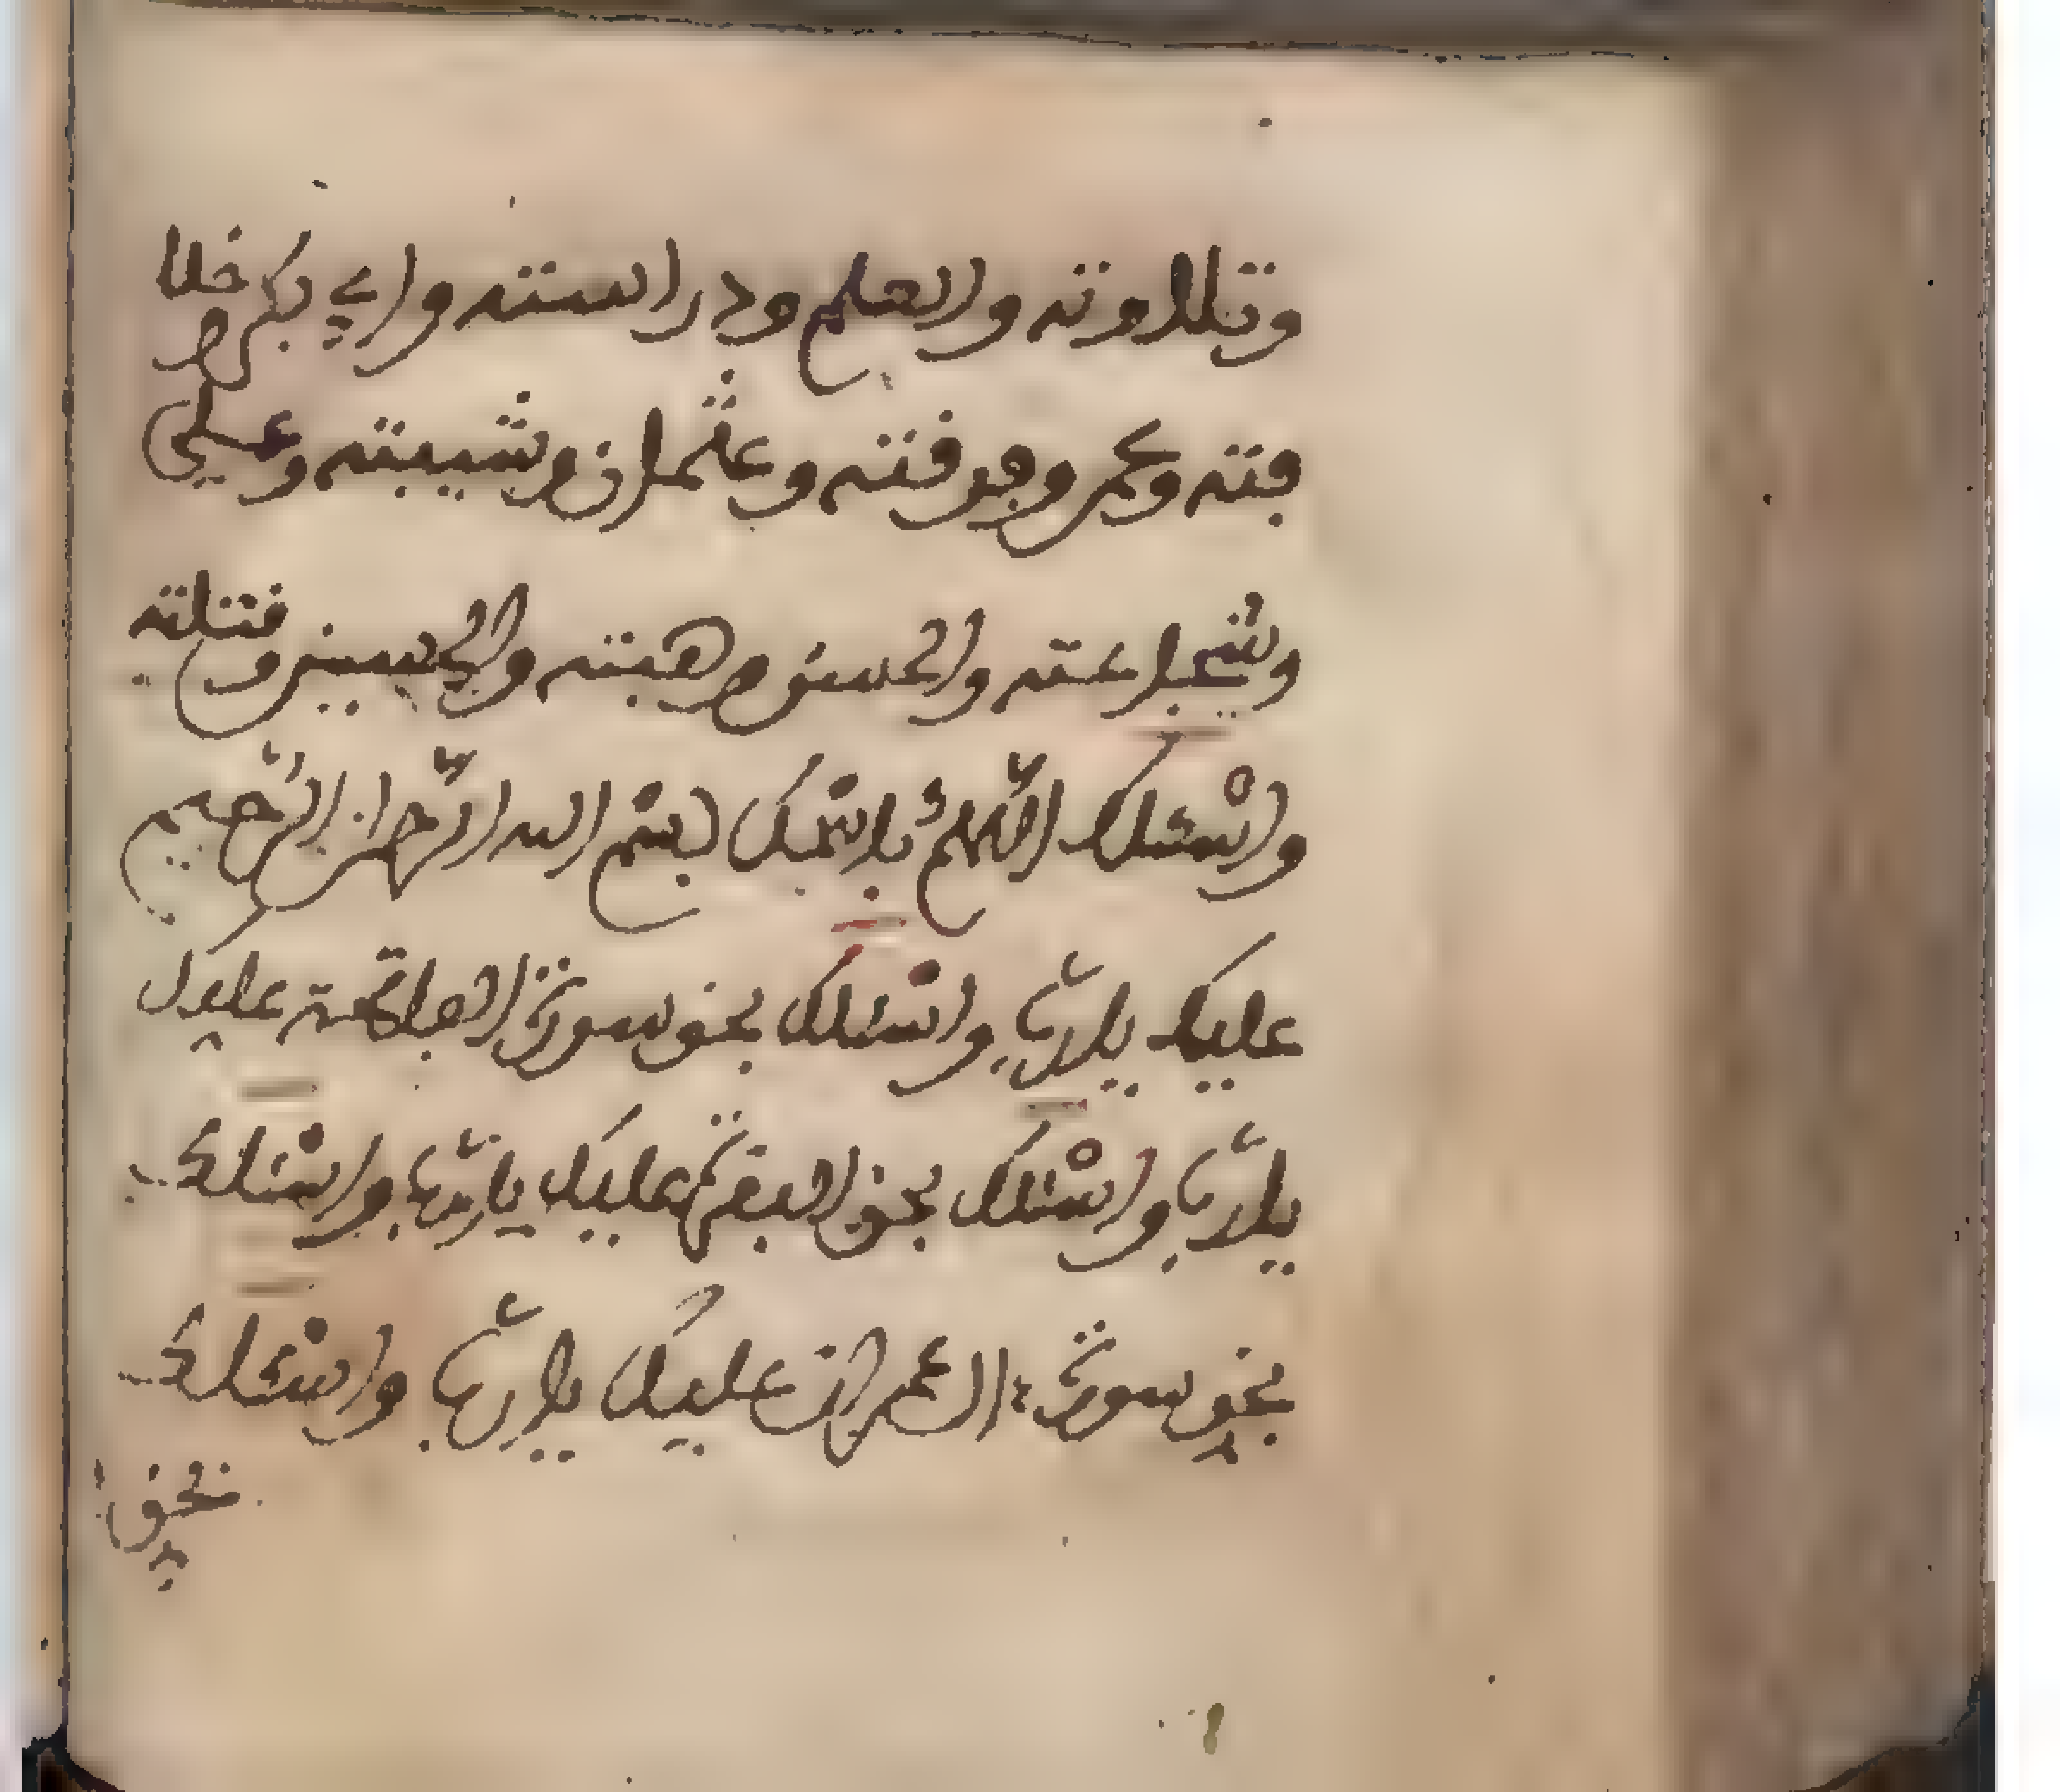 وتلاوته والعلم ودراسته وابي بكر وخلا
فته وعمر وجوفته وعثمان وشيبته وعلي
وشجاعته والحسن وهبته والحسين وقتلته
واسئلك اللهم باسمك بسم الله الرحمان الرحيم
عليك يارب واسئلك بحق سورة الفاتحة عليك
يارب واسئلك بحق البقرة عليك يارب واسئلك
بحق سورة ال عمران عليك يارب واسئلك
بحق